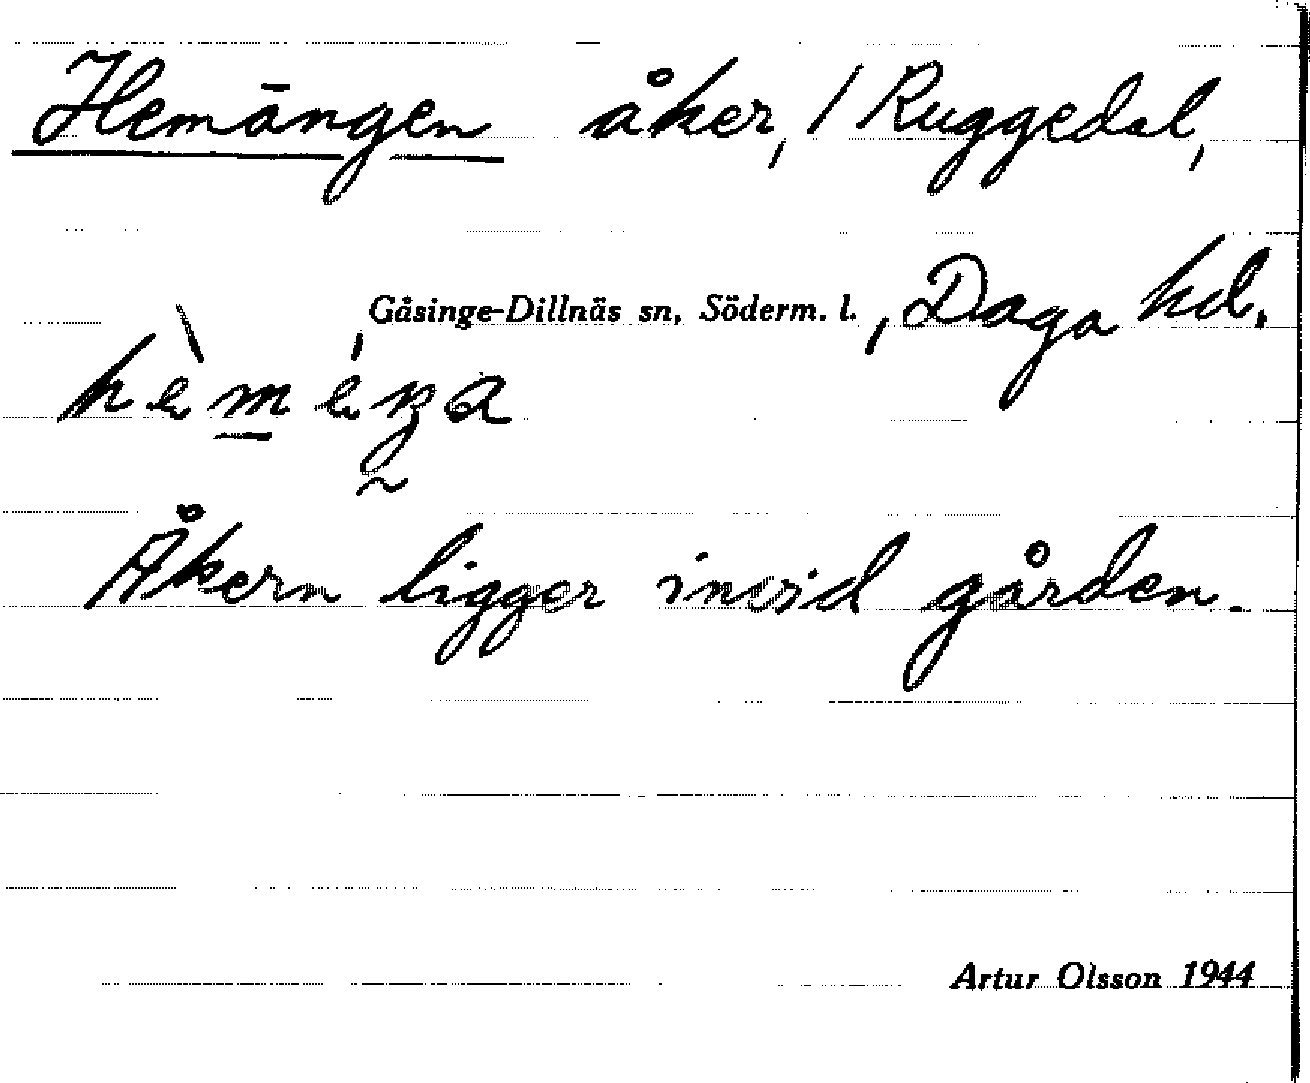 Hemängen åker, / Ruggedal,
Gåsinge-Dillnäs sn, Söderm. l., Daga hd.
Åkern ligger invid gården.
Artur Olsson 1944